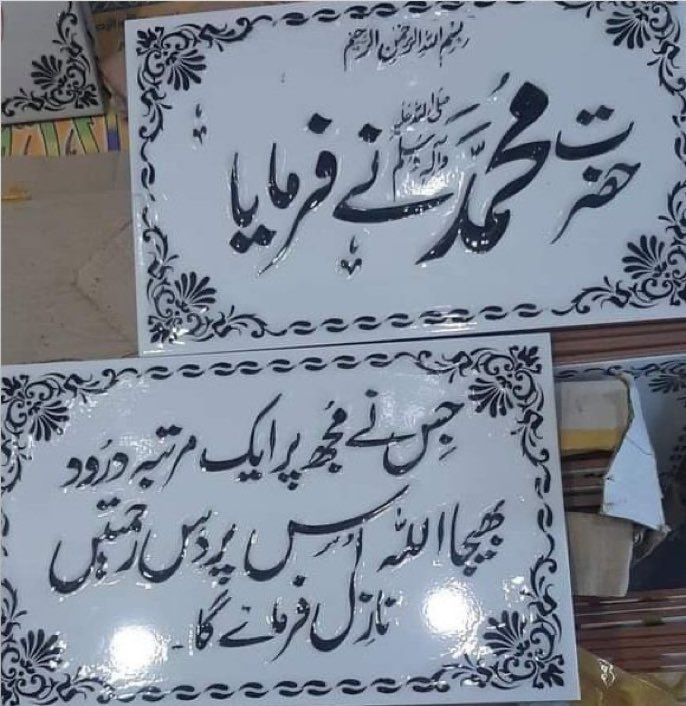 بسم اللہ الرحمن الرحیم
حضرت محمد صلی اللہ علیہ وآلہ وسلم نے فرمایا
جس نے مجھ پر ایک مرتبہ درود
بھیجا اللہ اُس پر دس رحمتیں
نازل فرمائے گا۔